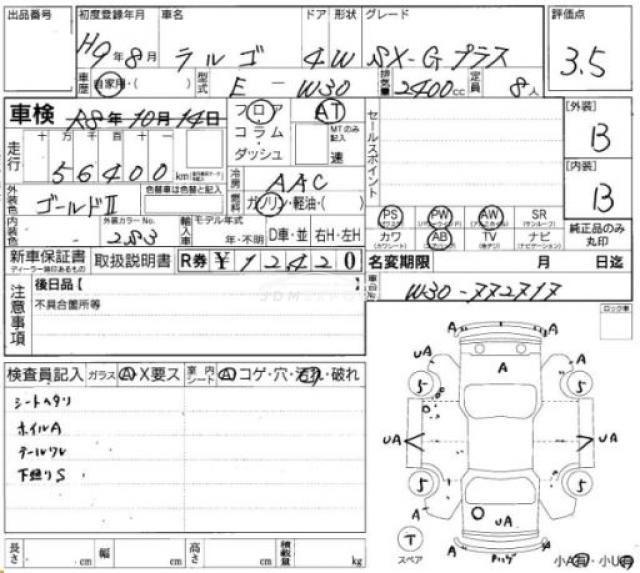 出品番号 初度登録年月 車名 ドア 形状 グレード 評価点
H9年8月 ラルゴ 4W SX-Gプラス 3.5
車歴 自家用・( ) 型式 E-W30 排気量 2400cc 定員 8人
車検 R8年10月14日 フロア AT セールスポイント [外装] B
走行 十万千百十 コラム・ダッシュ MTのみ記入 速
56400km 冷房 AAC [内装] B
外装色 ゴールドII 色替車は色替と記入 燃料 ガソリン・軽油・( )
PS PW AW SR(サンルーフ) 純正品のみ丸印
内装色 外装カラーNo. 283 輸入車 モデル年式 年・不明 D車・並 右H・左H カワ(カワシート) AB TV ナビ(ナビゲーション)
新車保証書 ディーラー捺印あるもの 取扱説明書 R券 ¥12420 名変期限 月 日迄
注意事項 後日品【 W30-772717
不具合箇所等 ロック車
検査員記入 ガラス A・X要ス 室内シート A・コゲ・穴・汚れ・破れ
シートヘタリ
ホイルA
テールワレ
下廻りS
A A
UA A A
5 5
UA UA
5 5
A UA A
T
スペア 小A有・小U有
長さ cm 幅 cm 高さ cm 積載量 kg